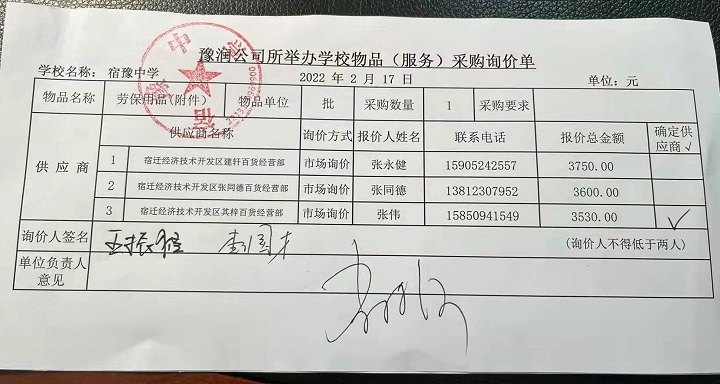 豫润公司所举办学校物品（服务）采购询价单
学校名称： 宿豫中学 2022 年 2 月 17 日 单位：元
物品名称 劳保用品(附件) 物品单位 批 采购数量 1 采购要求
供应商 供应商名称 询价方式 报价人姓名 联系电话 报价总金额 确定供应商√
1 宿迁经济技术开发区建轩百货经营部 市场询价 张永健 15905242557 3750.00
2 宿迁经济技术开发区张同德百货经营部 市场询价 张同德 13812307952 3600.00
3 宿迁经济技术开发区其梓百货经营部 市场询价 张伟 15850941549 3530.00 √
询价人签名 (询价人不得低于两人)
单位负责人意见